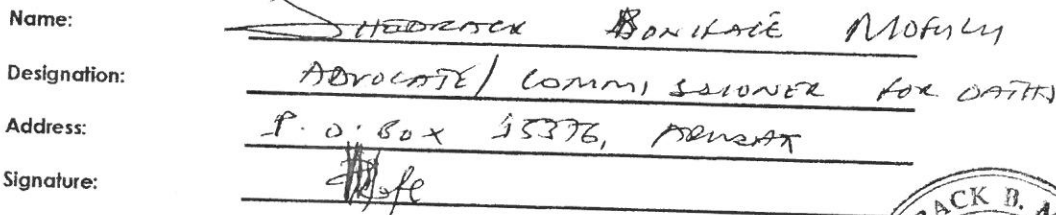 Name: SHEDRACK BONIFACE MOFULU
Designation: ADVOCATE/ COMMISSIONER FOR OATHS
Address: P. O. BOX 15376, ARUSHA
Signature:
RACK B.